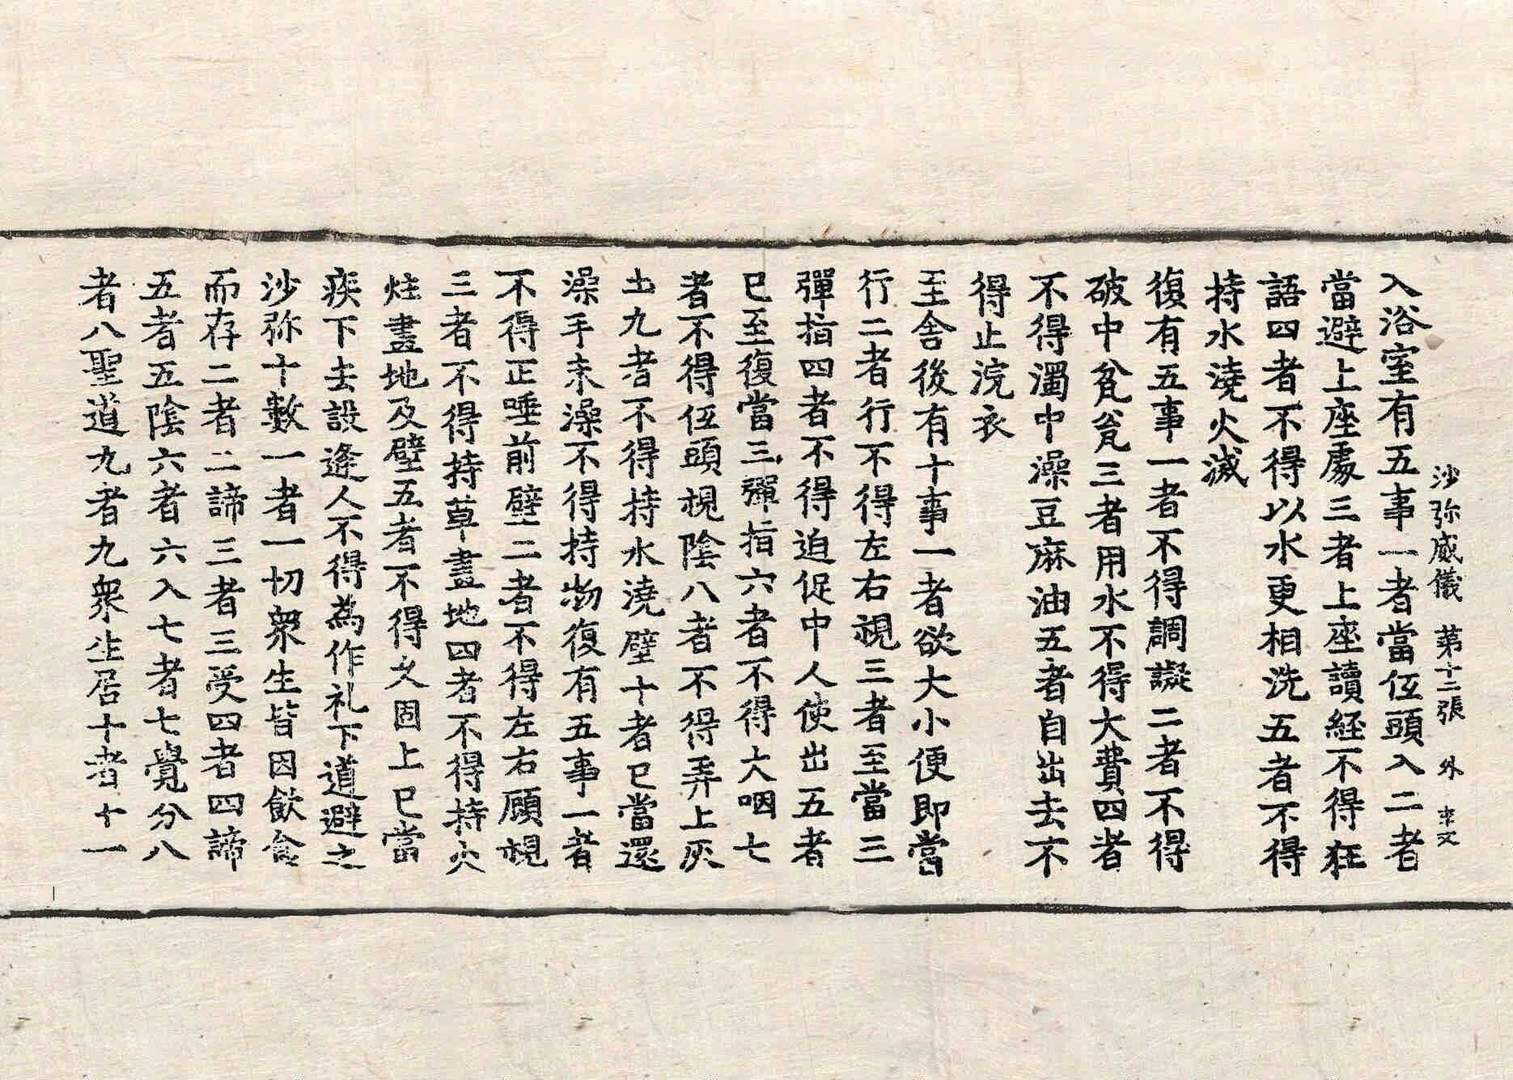 沙弥威儀 第十二張 外
入浴室有五事一者當伍頭入二者
當避上座處三者上座讀経不得狂
語四者不得以水更相洗五者不得
持水澆火滅
復有五事一者不得調譺二者不得
破中瓮瓮三者用水不得大費四者
不得濁中澡豆麻油五者自出去不
得止浣衣
至舍後有十事一者欲大小便即當
行二者行不得左右視三者至當三
彈指四者不得迫促中人使出五者
已至復當三彈指六者不得大咽七
者不得伍頭視陰八者不得弄上灰
土九者不得持水澆壁十者已當還
澡手未澡不得持物復有五事一者
不得正唾前壁二者不得左右顧視
三者不得持草畫地四者不得持火
炷畫地及壁五者不得久固上已當
疾下去設逢人不得為作礼下道避之
沙弥十數一者一切衆生皆因飲食
而存二者二諦三者三受四者四諦
五者五陰六者六入七者七覺分八
者八聖道九者九衆生居十者十一